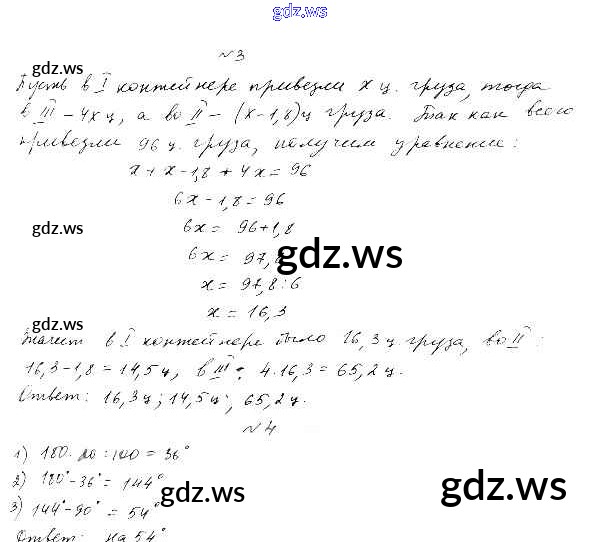 gdz.ws
№3
gdz.ws
Пусть в I контейнере привезли x ц. груза, тогда
в III - 4x ц, а во II - (x-1,8) ц груза. Так как всего
привезли 96 ц. груза, получим уравнение:
x + x - 1,8 + 4x = 96
6x - 1,8 = 96
gdz.ws
6x = 96 + 1,8
6x = 97,8
gdz.ws
x = 97,8 : 6
x = 16,3
gdz.ws
Значит в I контейнере было 16,3 ц груза, во II:
16,3 - 1,8 = 14,5 ц, в III: 4·16,3 = 65,2 ц.
Ответ: 16,3 ц; 14,5 ц; 65,2 ц.
№4
1) 180· :100 = 36°
2) 180° - 36° = 144°
gdz.ws
gdz.ws
3) 144° - 90° = 54°
Ответ: на 54°